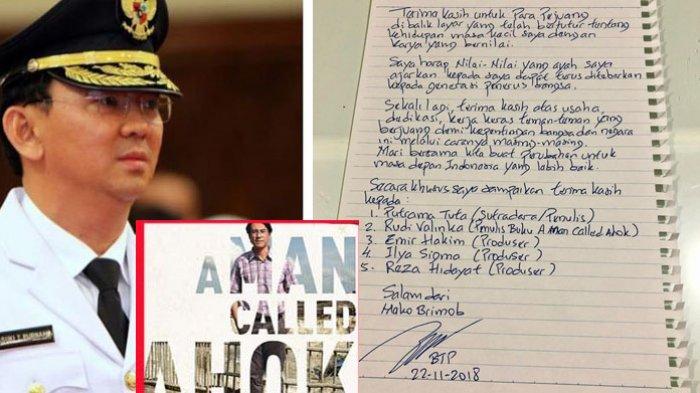 Terima kasih untuk Para Pejuang
dibalik layar yang telah bertutur tentang
kehidupan masa kecil saya dengan
karya yang bernilai.
Saya harap Nilai-Nilai yang ayah saya
ajarkan kepada saya dapat terus ditebarkan
kepada generasi penerus bangsa.
Sekali lagi, terima kasih atas usaha,
dedikasi, kerja keras teman-teman yang
berjuang demi kepentingan bangsa dan negara
ini melalui caranya masing-masing.
Mari bertama kita buat perubahan untuk
masa depan Indonesia yang lebih baik.
Secara khusus saya sampaikan terima kasih
kepada :
1. Putrama Tuta (Sutradara/Penulis)
2. Rudi Valinka (Penulis Buku A Man Called Ahok)
3. Emir Hakim (Produser)
4. Ilya Sigma (Produser)
5. Reza Hidayat (Produser)
Salam dari
Mako Brimob
BTP
22-11-2018
A MAN
CALLED
AHOK